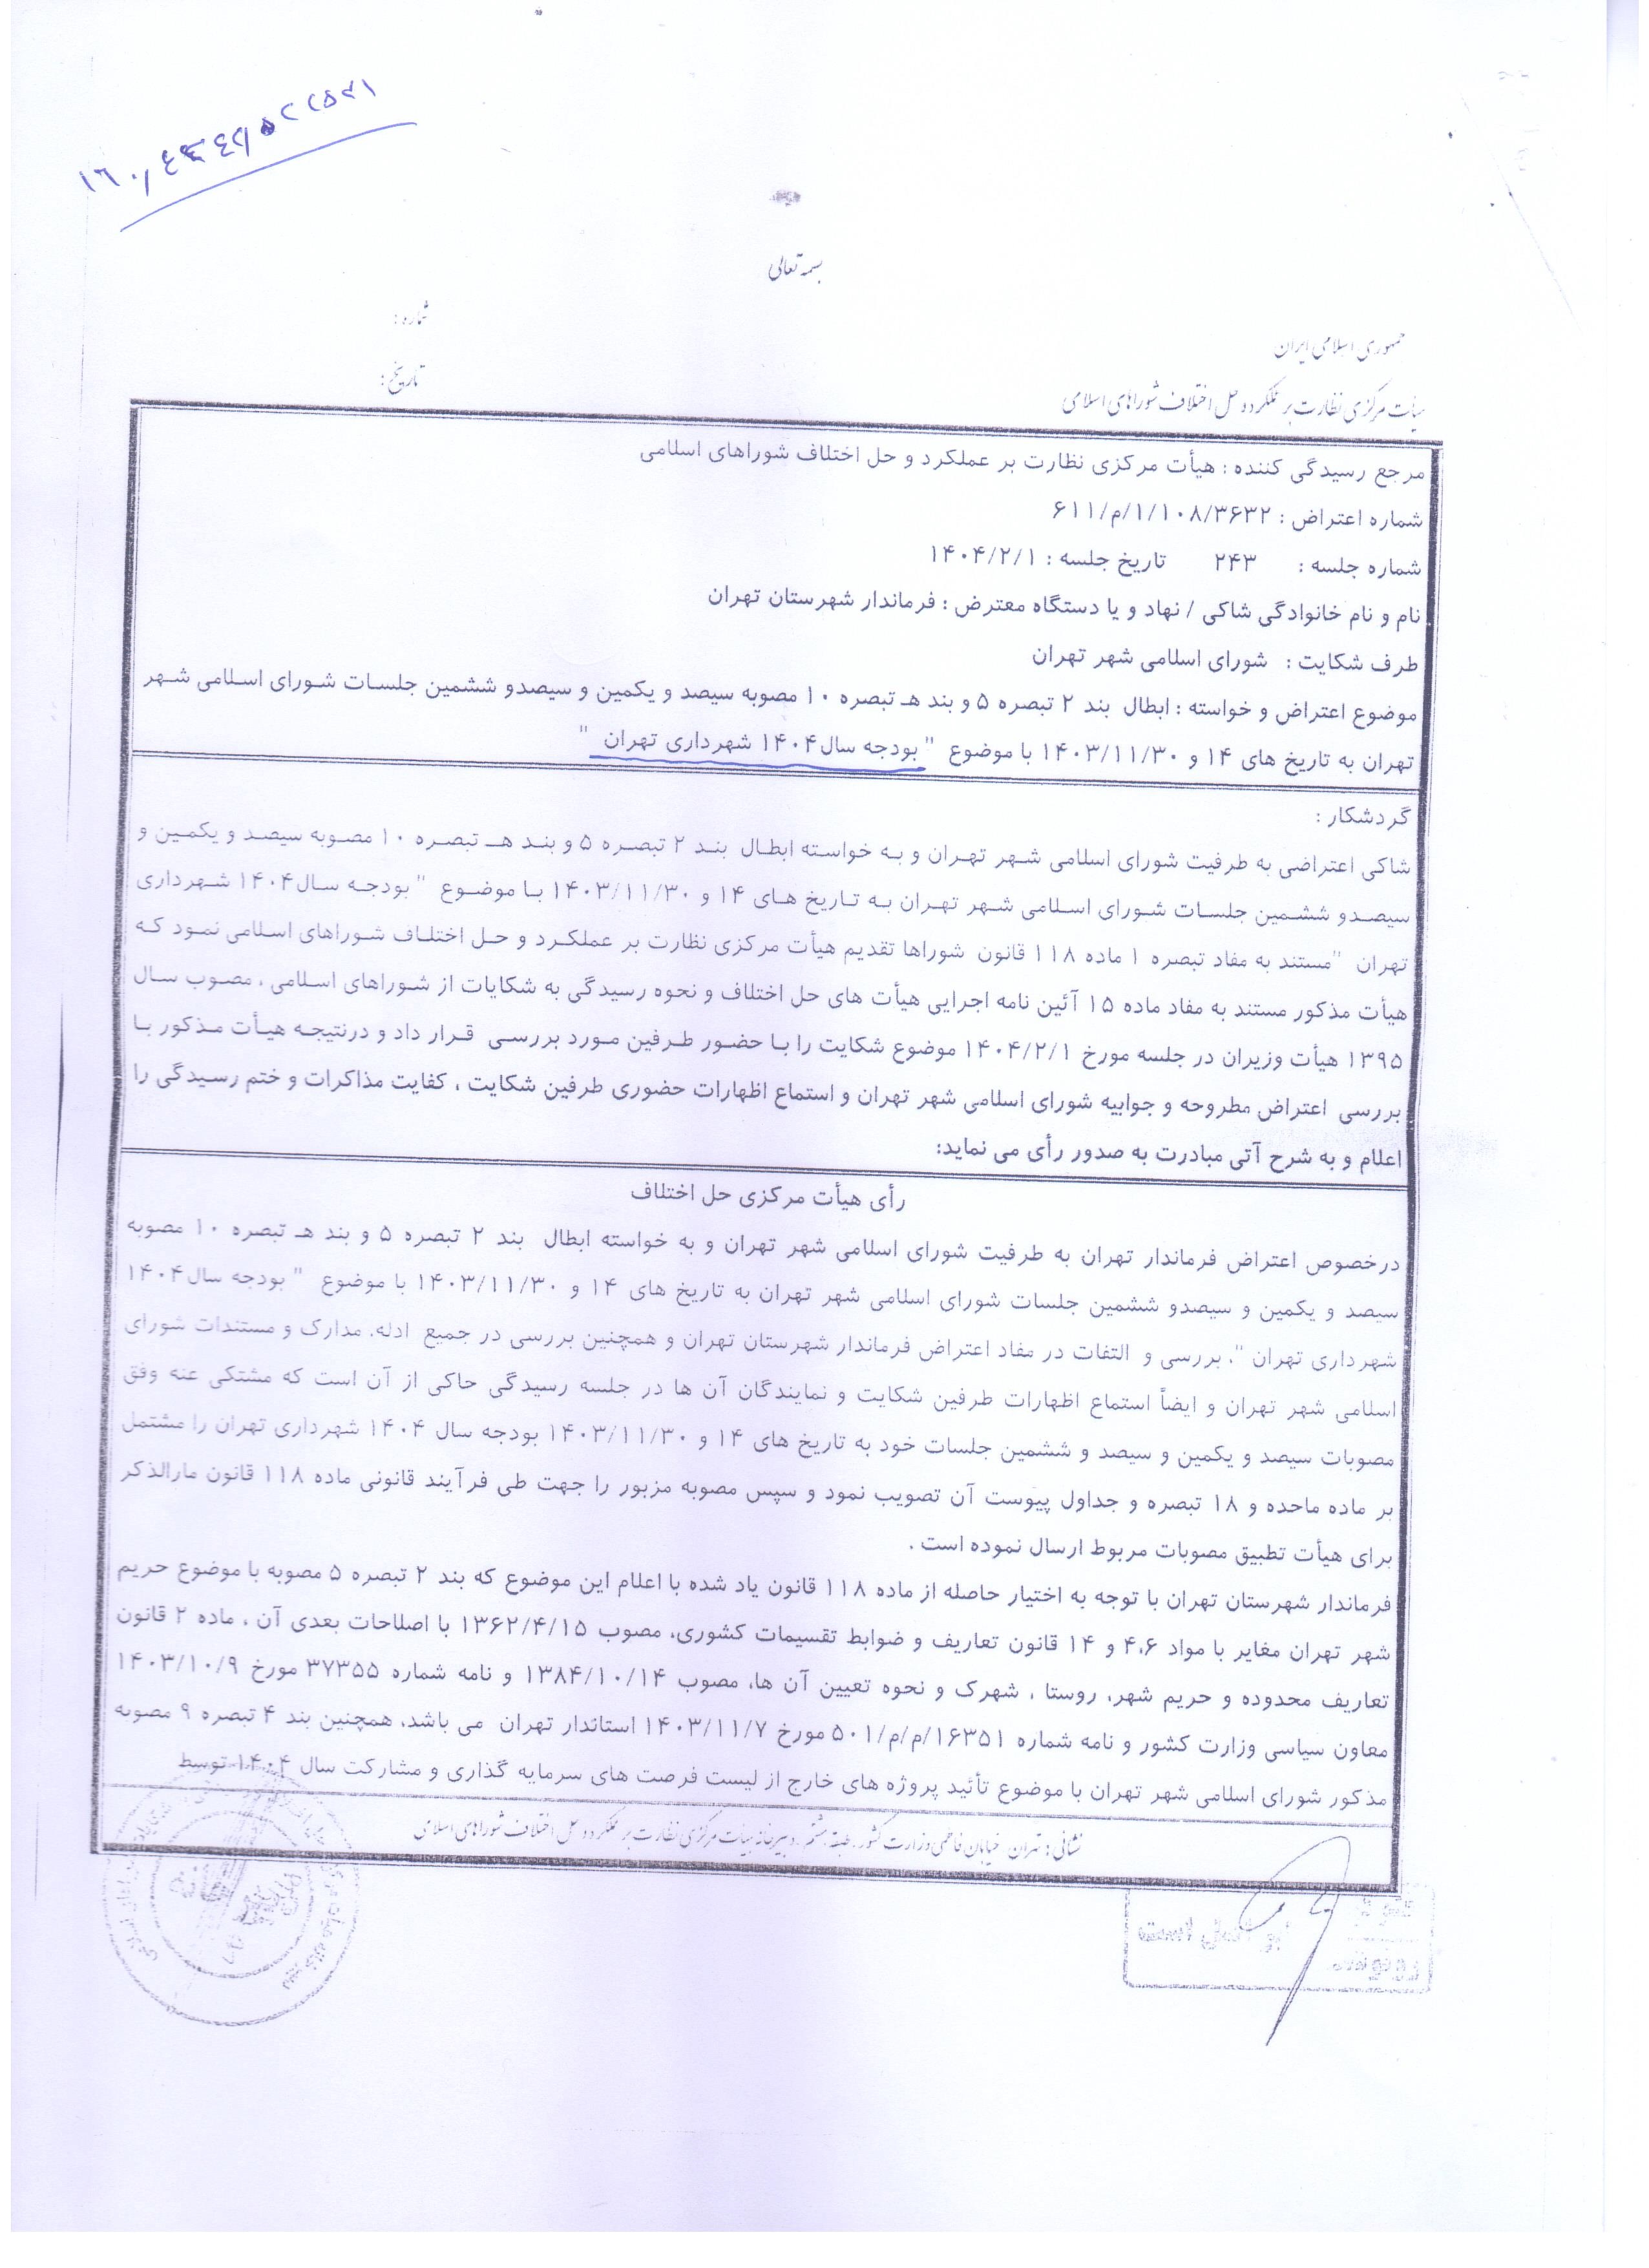 بسمه تعالی
شماره :
جمهوری اسلامی ایران
تاریخ :
هیأت مرکزی نظارت بر عملکرد و حل اختلاف شوراهای اسلامی
مرجع رسیدگی کننده : هیأت مرکزی نظارت بر عملکرد و حل اختلاف شوراهای اسلامی
شماره اعتراض : ۶۱۱/م/۱/۱۰۸/۳۶۳۲
شماره جلسه : ۲۴۳ تاریخ جلسه : ۱۴۰۴/۲/۱
نام و نام خانوادگی شاکی / نهاد و یا دستگاه معترض : فرماندار شهرستان تهران
طرف شکایت : شورای اسلامی شهر تهران
موضوع اعتراض و خواسته : ابطال بند ۲ تبصره ۵ و بند هـ تبصره ۱۰ مصوبه سیصد و یکمین و سیصدو ششمین جلسات شورای اسلامی شهر
تهران به تاریخ های ۱۴ و ۱۴۰۳/۱۱/۳۰ با موضوع " بودجه سال۱۴۰۴ شهرداری تهران "
گردشکار :
شاکی اعتراضی به طرفیت شورای اسلامی شهر تهران و به خواسته ابطال بند ۲ تبصره ۵ و بند هـ تبصره ۱۰ مصوبه سیصد و یکمین و
سیصدو ششمین جلسات شورای اسلامی شهر تهران به تاریخ های ۱۴ و ۱۴۰۳/۱۱/۳۰ با موضوع " بودجه سال۱۴۰۴ شهرداری
تهران "مستند به مفاد تبصره ۱ ماده ۱۱۸ قانون شوراها تقدیم هیأت مرکزی نظارت بر عملکرد و حل اختلاف شوراهای اسلامی نمود که
هیأت مذکور مستند به مفاد ماده ۱۵ آئین نامه اجرایی هیأت های حل اختلاف و نحوه رسیدگی به شکایات از شوراهای اسلامی ، مصوب سال
۱۳۹۵ هیأت وزیران در جلسه مورخ ۱۴۰۴/۲/۱ موضوع شکایت را با حضور طرفین مورد بررسی قرار داد و درنتیجه هیأت مذکور با
بررسی اعتراض مطروحه و جوابیه شورای اسلامی شهر تهران و استماع اظهارات حضوری طرفین شکایت ، کفایت مذاکرات و ختم رسیدگی را
اعلام و به شرح آتی مبادرت به صدور رأی می نماید:
رأی هیأت مرکزی حل اختلاف
درخصوص اعتراض فرماندار تهران به طرفیت شورای اسلامی شهر تهران و به خواسته ابطال بند ۲ تبصره ۵ و بند هـ تبصره ۱۰ مصوبه
سیصد و یکمین و سیصدو ششمین جلسات شورای اسلامی شهر تهران به تاریخ های ۱۴ و ۱۴۰۳/۱۱/۳۰ با موضوع " بودجه سال۱۴۰۴
شهرداری تهران "، بررسی و التفات در مفاد اعتراض فرماندار شهرستان تهران و همچنین بررسی در جمیع ادله، مدارک و مستندات شورای
اسلامی شهر تهران و ایضاً استماع اظهارات طرفین شکایت و نمایندگان آن ها در جلسه رسیدگی حاکی از آن است که مشتکی عنه وفق
مصوبات سیصد و یکمین و سیصد و ششمین جلسات خود به تاریخ های ۱۴ و ۱۴۰۳/۱۱/۳۰ بودجه سال ۱۴۰۴ شهرداری تهران را مشتمل
بر ماده ماحده و ۱۸ تبصره و جداول پیوست آن تصویب نمود و سپس مصوبه مزبور را جهت طی فرآیند قانونی ماده ۱۱۸ قانون مارالذکر
برای هیأت تطبیق مصوبات مربوط ارسال نموده است .
فرماندار شهرستان تهران با توجه به اختیار حاصله از ماده ۱۱۸ قانون یاد شده با اعلام این موضوع که بند ۲ تبصره ۵ مصوبه با موضوع حریم
شهر تهران مغایر با مواد ۴،۶ و ۱۴ قانون تعاریف و ضوابط تقسیمات کشوری، مصوب ۱۳۶۲/۴/۱۵ با اصلاحات بعدی آن ، ماده ۲ قانون
تعاریف محدوده و حریم شهر، روستا ، شهرک و نحوه تعیین آن ها، مصوب ۱۳۸۴/۱۰/۱۴ و نامه شماره ۳۷۳۵۵ مورخ ۱۴۰۳/۱۰/۹
معاون سیاسی وزارت کشور و نامه شماره ۵۰۱/م/م/۱۶۳۵۱ مورخ ۱۴۰۳/۱۱/۷ استاندار تهران می باشد، همچنین بند ۴ تبصره ۹ مصوبه
مذکور شورای اسلامی شهر تهران با موضوع تأئید پروژه های خارج از لیست فرصت های سرمایه گذاری و مشارکت سال ۱۴۰۴ توسط
نشانی : تهران خیابان فاطمی وزارت کشور، طبقه هشتم ، دبیرخانه هیأت مرکزی نظارت بر عملکرد و حل اختلاف شوراهای اسلامی